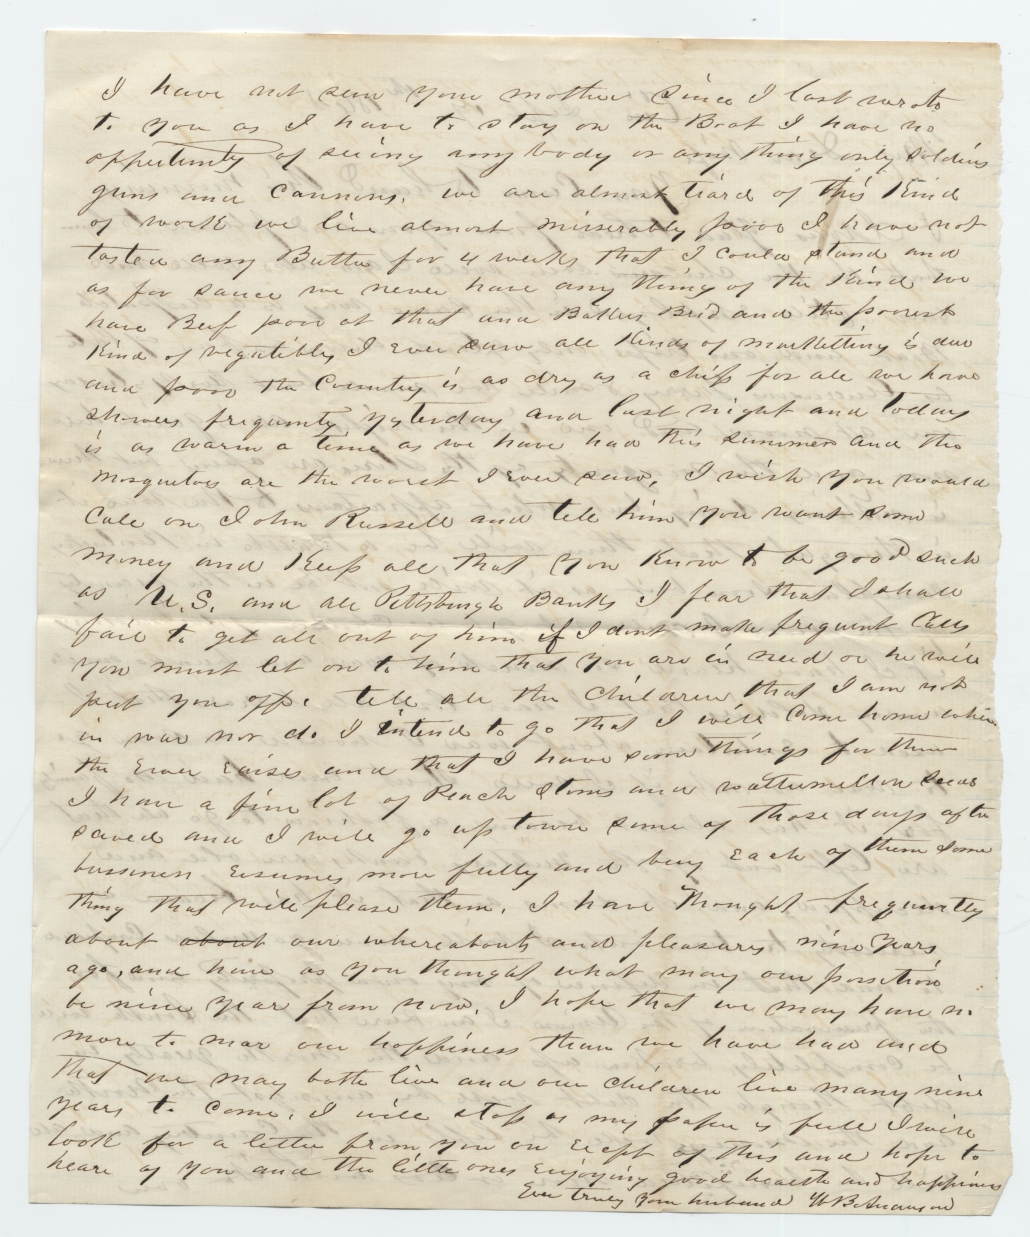 I have not seen your mother since I last wrote
to you as I have to stay on the Boat I have no
oppertunity of seeing any body or any thing only soldiers
guns and cannons. we are almost tiard of this Kind
of work we live almost miserably poor I have not
tasted any Butter for 4 weeks that I could stand and
as for sauce we never have any thing of the Kind we
have Beef poor at that and Bakers Bred and the poorest
Kind of vegatibles I Ever saw all Kinds of marketting is dear
and poor the Country is as dry as a chip for all we have
showers frequently yesterday and last night and today
is as warm a time as we have had this summer and the
mosquetos are the worst I Ever saw, I wish you would
Call on John Russell and tell him you want some
money and Keep all that you Know to be good such
as U.S. and all Pittsburgh Banks I fear that I shall
fail to get all out of him if I dont make frequent Calls
you must let on to him that you are in need or he will
put you off. tell all the Children that I am not
in war nor do I intend to go that I will Come home when
the river raises and that I have some things for them
I have a fine lot of Peach stones and wattermellon seeds
saved and I will go up town some of those days after
bussiness resumes more fully and buy Each of them some
thing that will please them. I have thought frequently
about about our whereabouts and pleasures nine years
ago, and have as you thought what may our possition
be nine year from now. I hope that we may have no
more to mar our happiness than we have had and
that we may both live and our children live many nine
years to come. I will stop as my paper is full I will
look for a letter from you on recpt of this and hope to
heare of you and the little ones Enjoying good health and happiness
Ever truly your husband W B